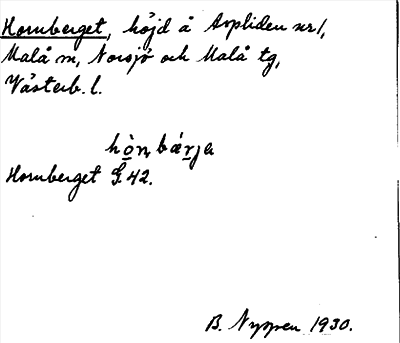 Hornberget, höjd å Aspliden nr 1,
Malå sn, Norsjö och Malå tg,
Västerb. l.
hòn, bǽrjɐ
Hornberget G.42.
B. Nyssen 1930.